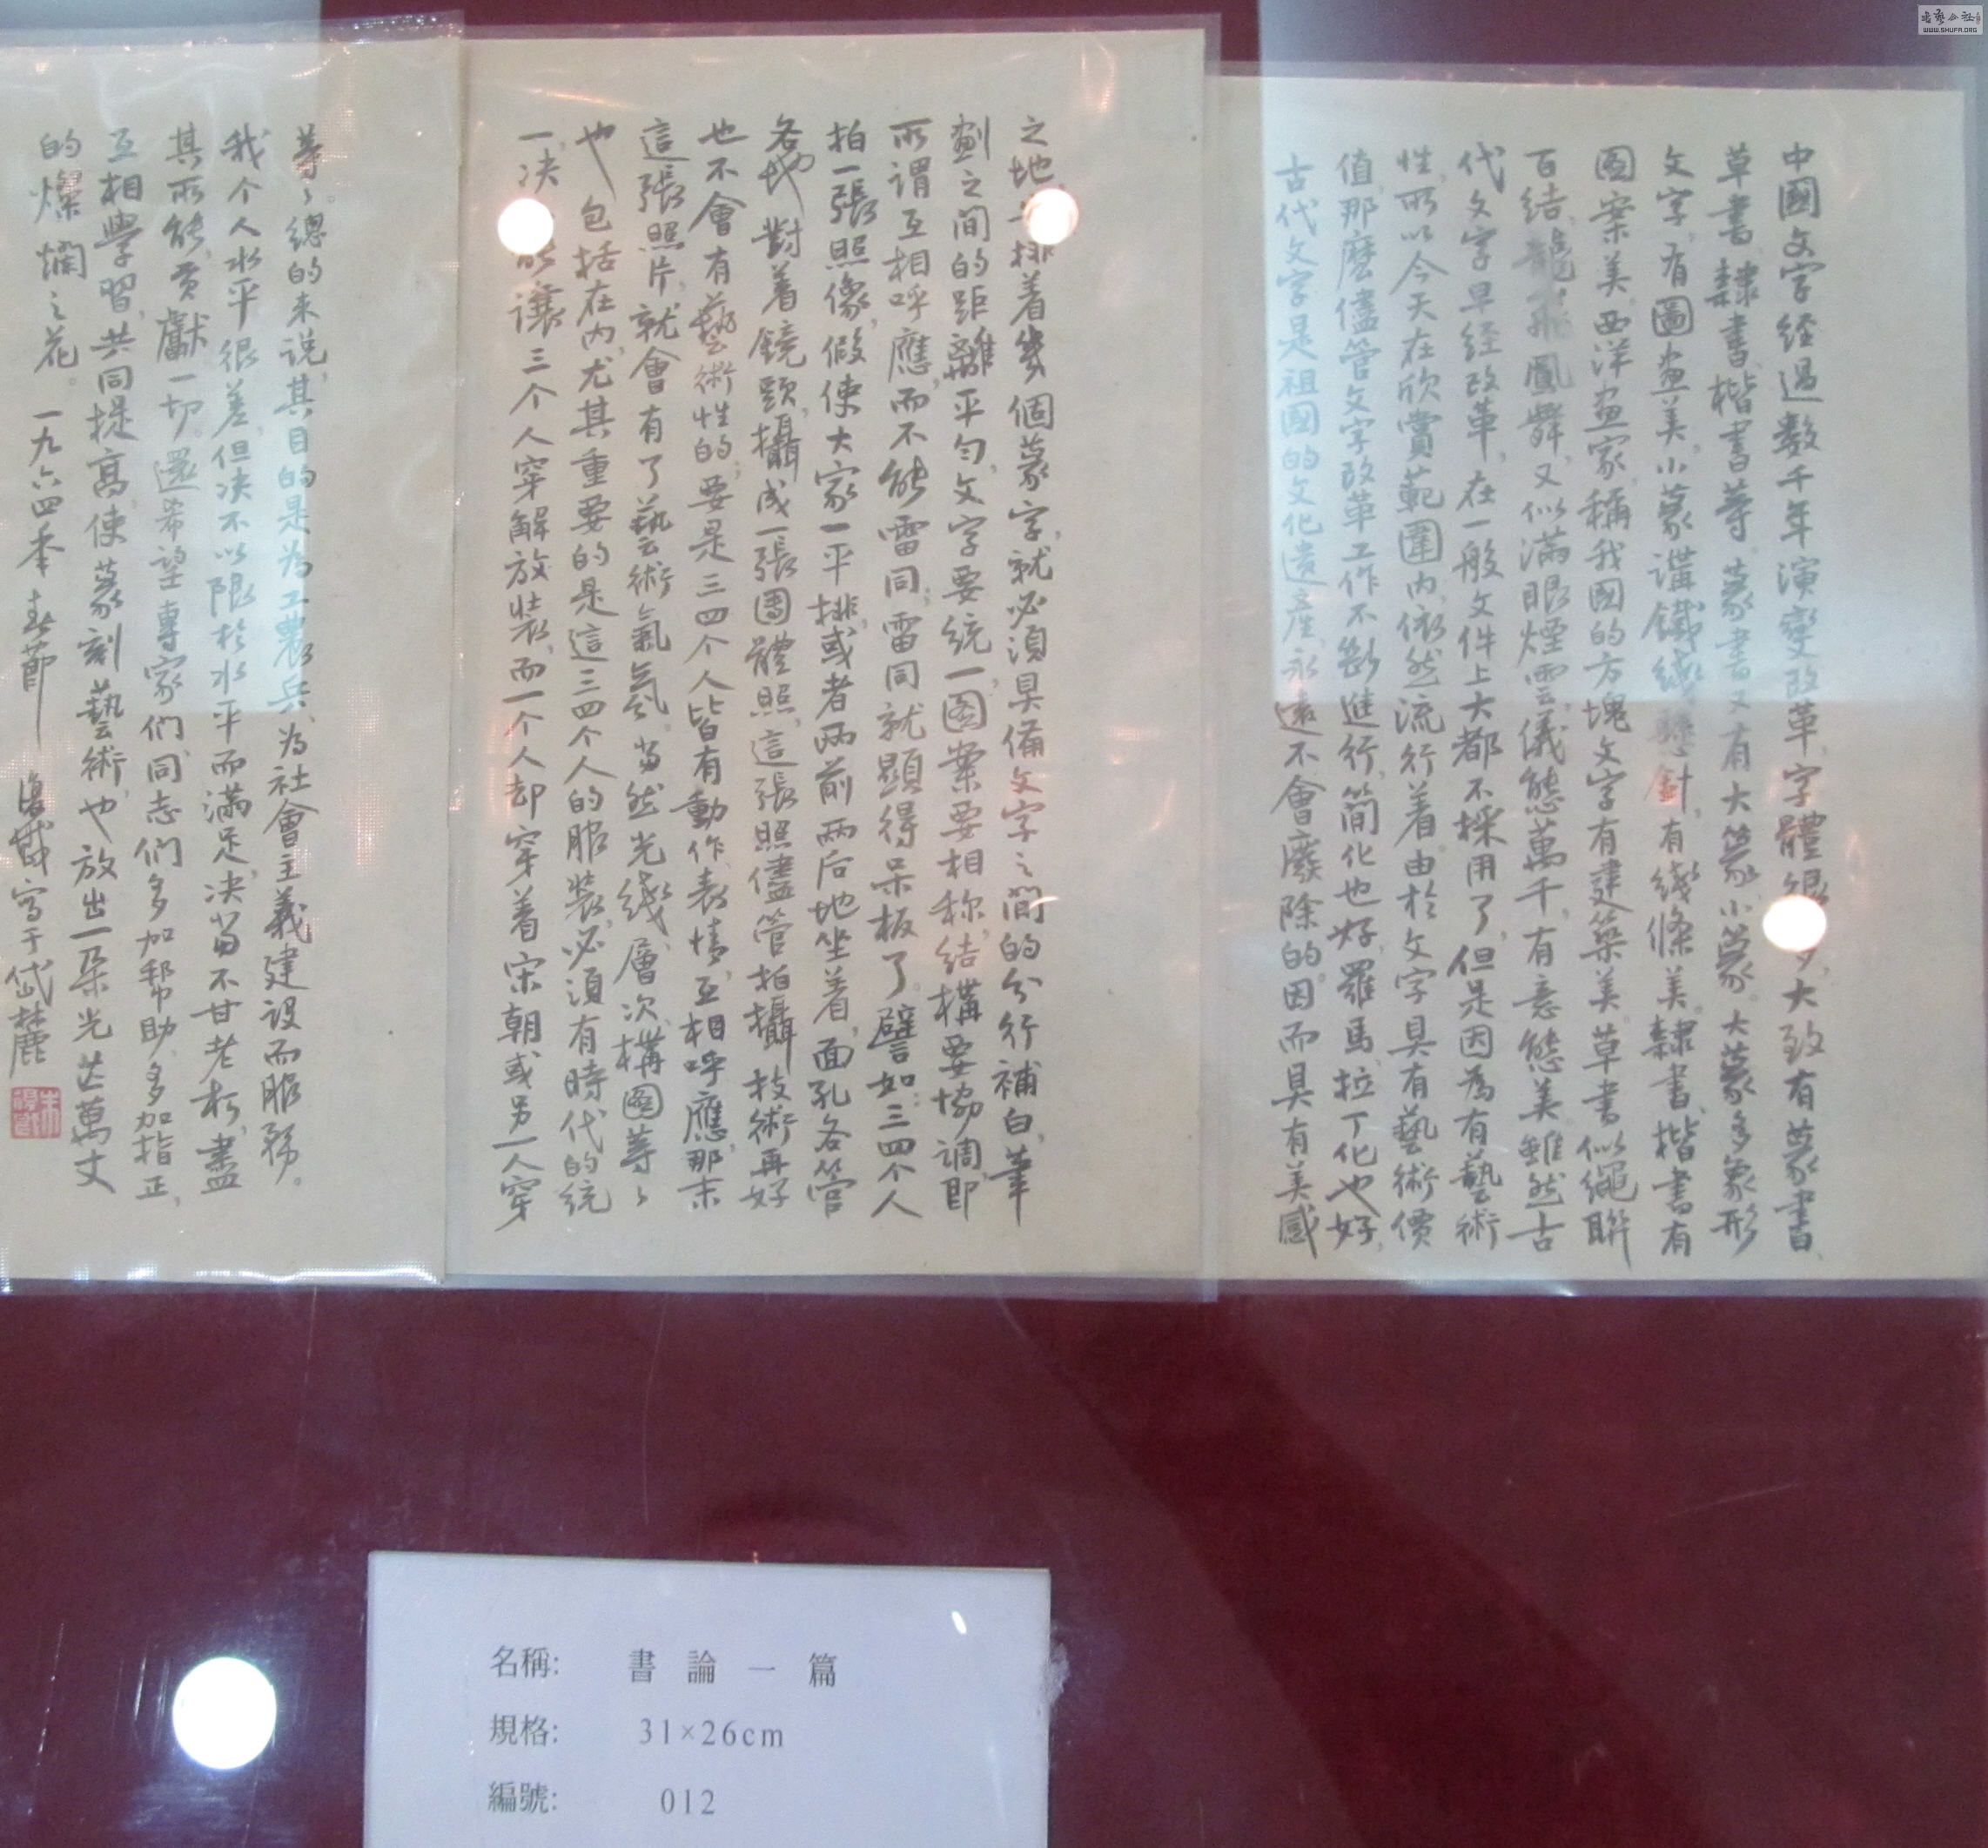 中國文字经過数千年演變改革，字體很多，大致有篆書、
草書、隸書、楷書等。篆書又有大篆、小篆。大篆多象形
文字，有圖画美，小篆講鐵綫懸針，有綫條美。隸書、楷書有
图案美。西洋画家，稱我國的方塊文字有建築美。草書似繩聨
百结，龍飛鳳舞，又似滿眼煙雲，儀態萬千，有意態美。雖然古
代文字早经改革，在一般文件上大都不採用了，但是因為有藝術
性，所以今天在欣賞範圍内，依然流行着。由於文字具有藝術價
值，那麽儘管文字改革工作不斷進行，简化也好，羅馬、拉丁化也好，
古代文字是祖國的文化遺產，永遠不會廢除的。因而具有美感
之地排着幾個篆字，就必須具備文字之間的分行補白，筆
劃之间的距離平匀，文字要統一，图案要相称，结構要協調，即
所谓互相呼應，而不能雷同；雷同就顯得呆板了。譬如：三四个人
拍一張照像，假使大家一平排，或者两前两后地坐着，面孔各管
各地對着鏡頭，攝成一張團體照，這張照儘管拍攝技術再好
也不會有藝術性的；要是三四个人皆有動作、表情，互相呼應，那末
這張照片，就會有了藝術氣氛。当然光綫、層次、構图等々
也包括在内，尤其重要的是這三四个人的服裝，必須有時代的統
一，决能讓三个人穿解放裝，而一个人却穿着宋朝或另一人穿
等々。總的来说，其目的是為工農兵、為社會主義建設而服務。
我个人水平很差，但决不以限於水平而滿足，决当不甘老朽，盡
其所能，贡獻一切。還希望專家们、同志们多加帮助，多加指正，
互相學習，共同提高，使篆刻藝術，也放出一朵光芒萬丈
的燦爛之花。一九六四年春節 復戡写于岱麓
朱復戡
名稱: 書論一篇
規格: 31×26cm
編號: 012
WWW.SHUFA.ORG